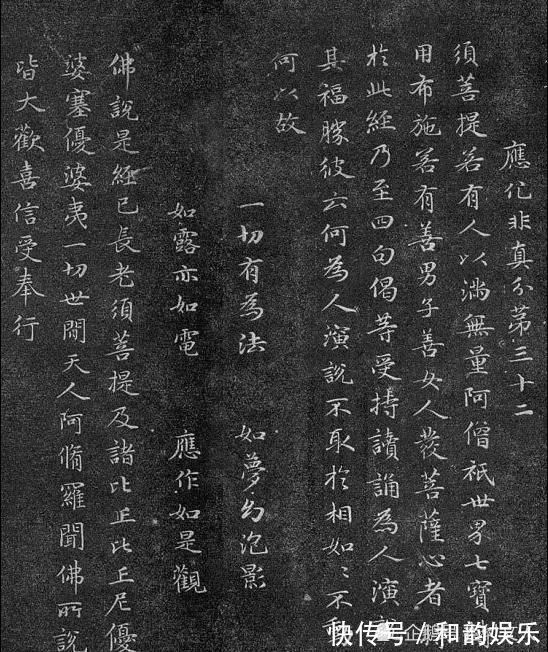 應化非真分第三十二
須菩提若有人以滿無量阿僧祇世界七寶
用布施若有善男子善女人發菩薩心者
於此經乃至四句偈等受持讀誦為人演
其福勝彼云何為人演說不取於相如〻不動
何以故
一切有為法 如夢幻泡影
如露亦如電 應作如是觀
佛說是經已長老須菩提及諸比丘比丘尼優
婆塞優婆夷一切世間天人阿脩羅聞佛所說
皆大歡喜信受奉行
快传号/和韵娱乐